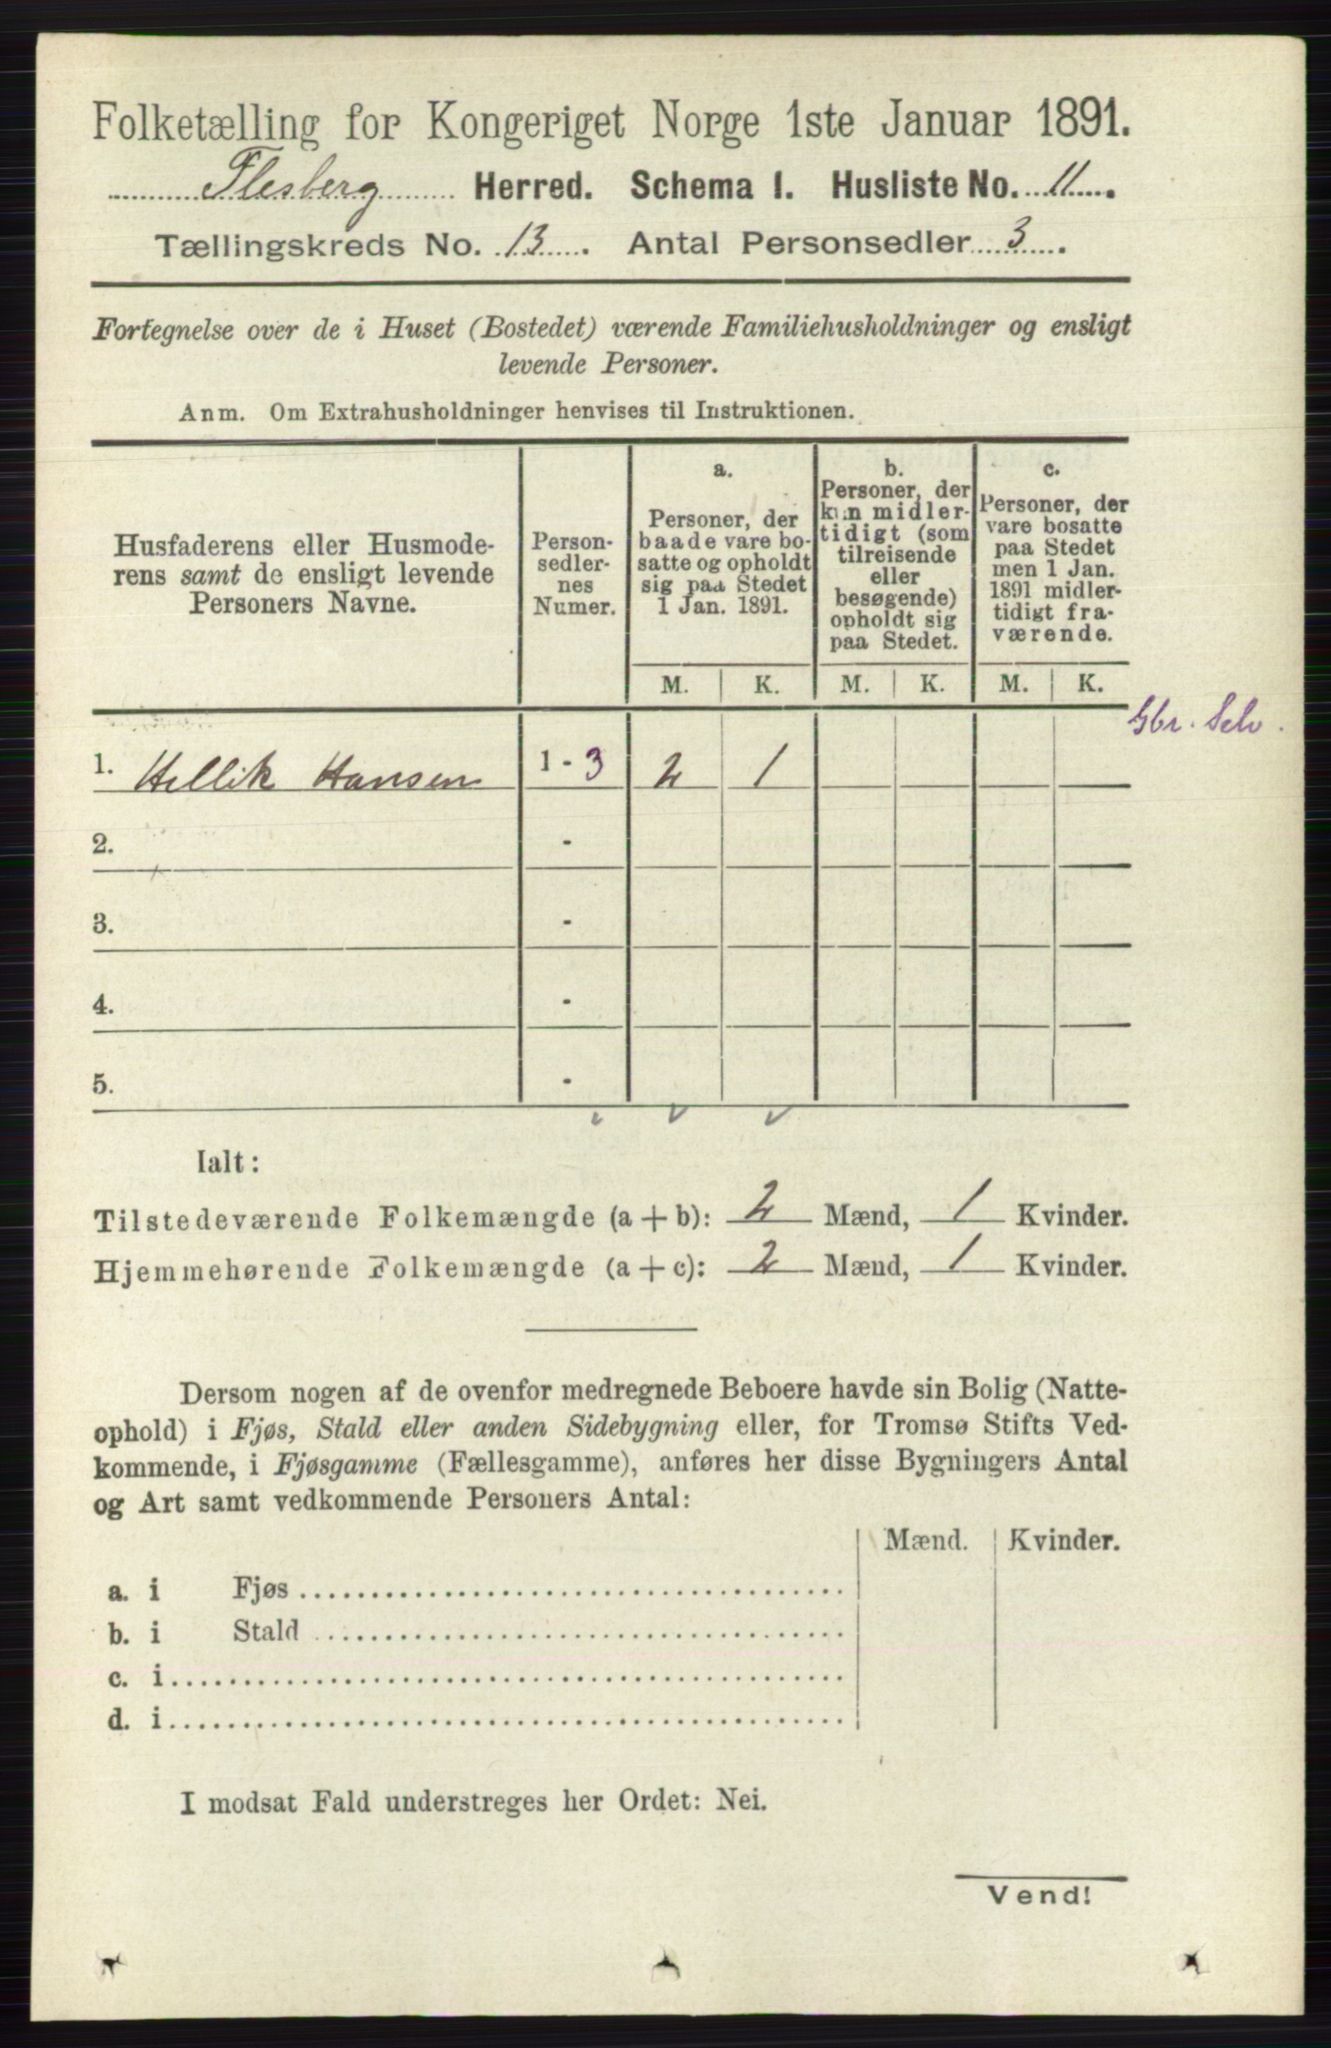 Folketælling for Kongeriget Norge 1ste Januar 1891.
Flesberg Herred. Schema 1. Husliste No. 11.
Tællingskreds No. 13. Antal Personsedler 3.
Fortegnelse over de i Huset (Bostedet) værende Familiehusholdninger og ensligt
levende Personer.
Anm. Om Extrahusholdninger henvises til Instruktionen.
Husfaderens eller Husmode-
rens samt de ensligt levende
Personers Navne.
Person-
sedler-
nes
Numer.
a.
Personer, der
baade vare bo-
satte og opholdt
sig paa Stedet
1 Jan. 1891.
b.
Personer, der
kun midler-
tidigt (som
tilreisende
eller
besøgende)
opholdt sig
paa Stedet.
c.
Personer, der
vare bosatte
paa Stedet
men 1 Jan.
1891 midler-
tidigt fra-
værende.
M. K. M. K. M. K.
Gbr. Selv.
1. Hellik Hansen 1 - 3 2 1
2. -
3. -
4. -
5. -
Ialt:
Tilstedeværende Folkemængde (a + b): 2 Mænd, 1 Kvinder.
Hjemmehørende Folkemængde (a + c): 2 Mænd, 1 Kvinder.
Dersom nogen af de ovenfor medregnede Beboere havde sin Bolig (Natte-
ophold) i Fjøs, Stald eller anden Sidebygning eller, for Tromsø Stifts Ved-
kommende, i Fjøsgamme (Fællesgamme), anføres her disse Bygningers Antal
og Art samt vedkommende Personers Antal:
Mænd. Kvinder.
a. i Fjøs
b. i Stald
c. i
d. i
I modsat Fald understreges her Ordet: Nei.
Vend!